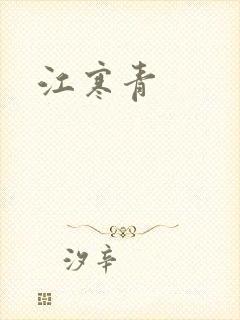 江寒青
汐辛